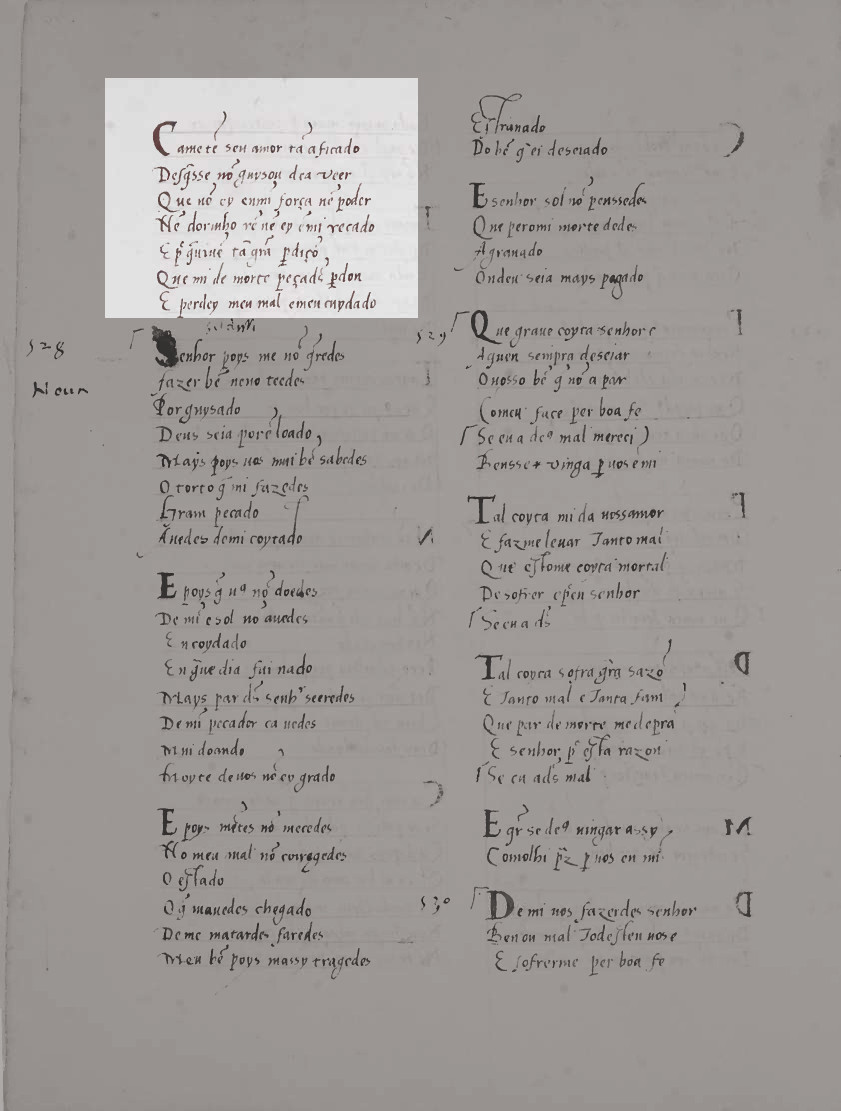 Came tẽ seu amor tã aficado
Desq̃sse nõ guysou dea veer
Que nõ ey enmĩ força nẽ poder
Nẽ dormho rẽ nẽ ey ẽmi recado
E p̃ q̃ uiuẽ tã grã p̱diçõ
Que mi de morte peçads̃ p̱don
E perdey meu mal emeu cuydado
528
Noun
Senhor poys me nõ q̃redes
fazer bẽ neno teedes
Por guysado
Deus seia porẽ loado
Mays poys uos mui bẽ sabedes
O torto q̃ mi fazedes
Gram pecado
Auedes demi coytado
E poys q̃ uꝯ nõ doedes
De mĩ e sol nõ auedes
En coydado
En g̃ue dia fui nado
Mays par ds̃ senhʳ seeredes
De mĩ pecador ca uedes
Mui doando
Moyte deuos nẽ ey grado
E poys mẽtes nõ mecedes
No meu mal nõ corregedes
O estado
O q̃ mauedes chegado
De me matardes faredes
Meu bẽ poys massy tragedes
Estranado
Do bẽ q̃ ei deseiado
E senhor sol nõ penssedes
Que peromi morte dedes
Agranado
Ondeu seia mays pagado
529
Que graue coyta senhor e
Aquen sempra deseiar
O uosso bẽ q̃ nõ a par
Comeu face per boa fe
Se eu a deꝯ mal mereci
Bensse vinga p̱ uos e mi
Tal coyta mi da uossamor
E fazme leuar Tanto mal
Que estome coyta mortal
De sofrer epẽn senhor
Se eu a ds̃
Tal coyta sofra grã sazõ
E Tanto mal e Tanta fam
Que par de morte me depra
E senhor, p̃ esta razon
Se eu a ds̃ mal
E gr̃ se deꝯ uingar assy
Comolhi pr̃z p̱ uos en mi
530
De mi uos fazerdes senhor
Ben ou mal Todesten uos e
E sofrerme per boa fe